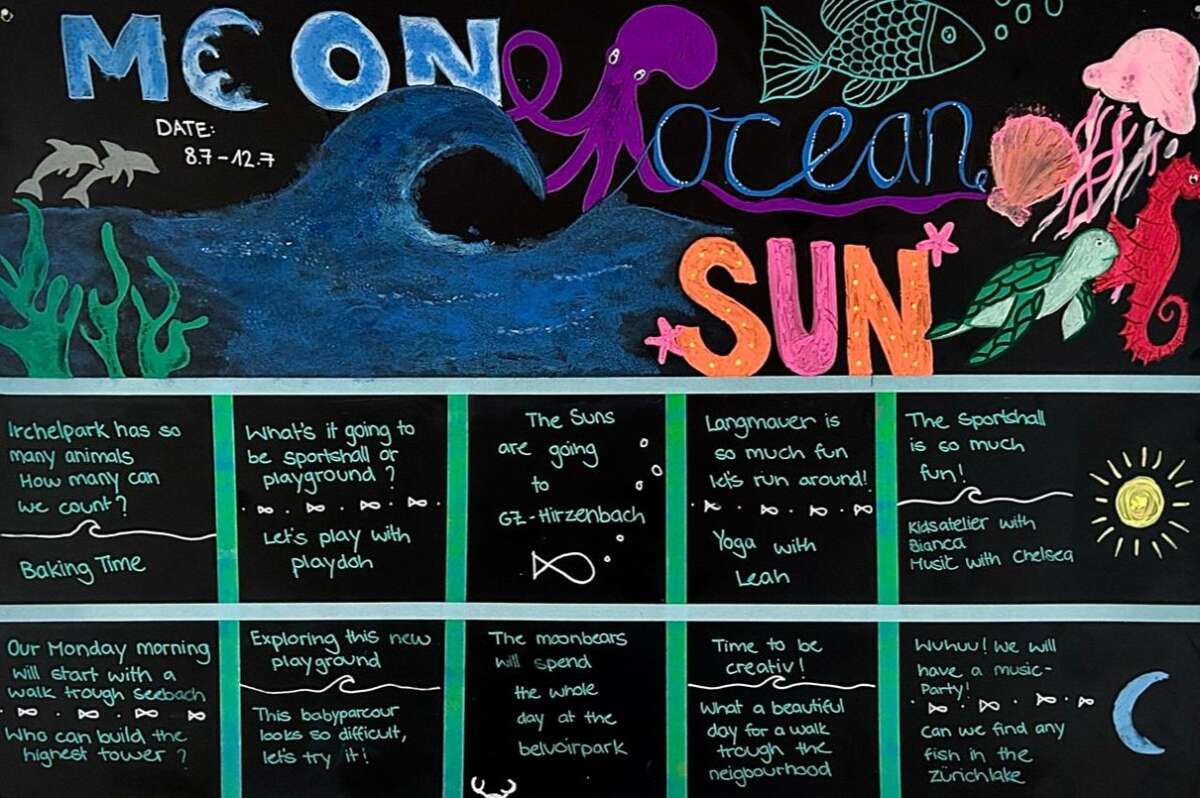 MOON
ocean
DATE:
8.7-12.7
SUN
Irchelpark has so
many animals
How many can
we count?
Baking Time
What's it going to
be sportshall or
playground?
Let's play with
playdoh
The Suns
are going
to
GZ-Hirzenbach
Langmauer is
so much fun
let's run around!
Yoga with
Leah
The sportshall
is so much
fun!
Kidsatelier with
Bianca
Music with Chelsea
Our Monday morning
will start with a
walk trough seebach
Who can build the
highest tower?
Exploring this new
playground
This babyparcour
looks so difficult,
let's try it!
The moonbears
will spend
the whole
day at the
belvoirpark
Time to be
creativ!
What a beautiful
day for a walk
trough the
neigbourhood
Wuhuu! We will
have a music-
Party!
can we find any
fish in the
Zürichlake